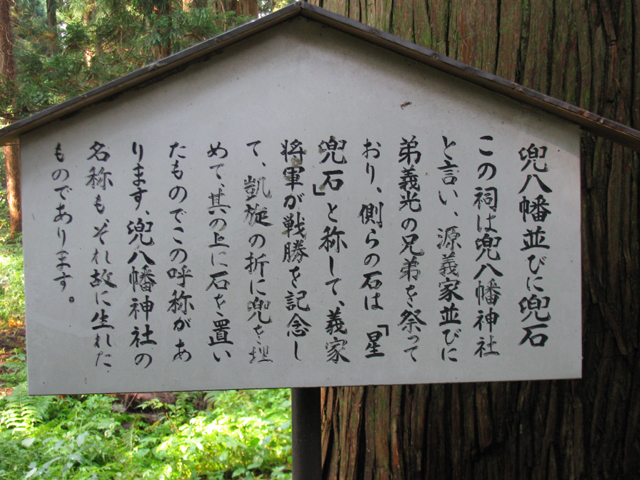 兜八幡並びに兜石
この祠は兜八幡神社
と言い、源義家並びに
弟義光の兄弟を祭って
おり、側らの石は「星
兜石」と称して、義家
将軍が戦勝を記念し
て、凱旋の折に兜を埋
めて、其の上に石を置い
たものでこの呼称があ
ります、兜八幡神社の
名称もそれ故に生れた
ものであります。